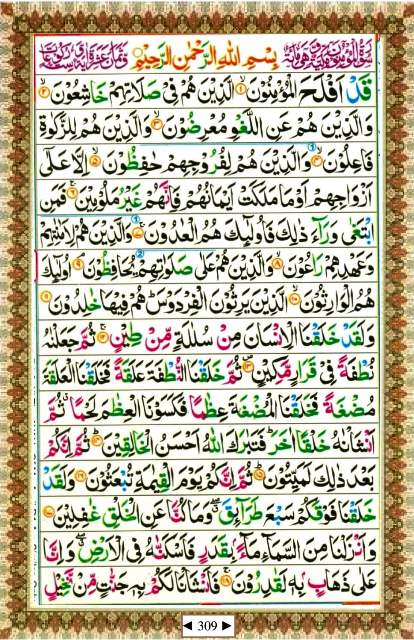 بِسْمِ اللّٰهِ الرَّحْمٰنِ الرَّحِيْمِ
قَدْ اَفْلَحَ الْمُؤْمِنُوْنَ ۙ۝۱ الَّذِيْنَ هُمْ فِيْ صَلَاتِهِمْ خَاشِعُوْنَ ۙ۝۲
وَالَّذِيْنَ هُمْ عَنِ اللَّغْوِ مُعْرِضُوْنَ ۙ۝۳ وَالَّذِيْنَ هُمْ لِلزَّكٰوةِ
فَاعِلُوْنَ ۙ۝۴ وَالَّذِيْنَ هُمْ لِفُرُوْجِهِمْ حٰفِظُوْنَ ۙ۝۵ اِلَّا عَلٰٓى
اَزْوَاجِهِمْ اَوْ مَا مَلَكَتْ اَيْمَانُهُمْ فَاِنَّهُمْ غَيْرُ مَلُوْمِيْنَ ۚ۝۶ فَمَنِ
ابْتَغٰى وَرَآءَ ذٰلِكَ فَاُولٰٓئِكَ هُمُ الْعٰدُوْنَ ۚ۝۷ وَالَّذِيْنَ هُمْ لِاَمٰنٰتِهِمْ
وَعَهْدِهِمْ رَاعُوْنَ ۙ۝۸ وَالَّذِيْنَ هُمْ عَلٰى صَلَوٰتِهِمْ يُحَافِظُوْنَ ۘ۝۹ اُولٰٓئِكَ
هُمُ الْوَارِثُوْنَ ۙ۝۱۰ الَّذِيْنَ يَرِثُوْنَ الْفِرْدَوْسَ ؕ هُمْ فِيْهَا خٰلِدُوْنَ ۝۱۱
وَلَقَدْ خَلَقْنَا الْاِنْسَانَ مِنْ سُلٰلَةٍ مِّنْ طِيْنٍ ۚ۝۱۲ ثُمَّ جَعَلْنٰهُ
نُطْفَةً فِيْ قَرَارٍ مَّكِيْنٍ ۪۝۱۳ ثُمَّ خَلَقْنَا النُّطْفَةَ عَلَقَةً فَخَلَقْنَا الْعَلَقَةَ
مُضْغَةً فَخَلَقْنَا الْمُضْغَةَ عِظٰمًا فَكَسَوْنَا الْعِظٰمَ لَحْمًا ۗ ثُمَّ
اَنْشَاْنٰهُ خَلْقًا اٰخَرَ ؕ فَتَبٰرَكَ اللّٰهُ اَحْسَنُ الْخَالِقِيْنَ ؕ۝۱۴ ثُمَّ اِنَّكُمْ
بَعْدَ ذٰلِكَ لَمَيِّتُوْنَ ؕ۝۱۵ ثُمَّ اِنَّكُمْ يَوْمَ الْقِيٰمَةِ تُبْعَثُوْنَ ۝۱۶ وَلَقَدْ
خَلَقْنَا فَوْقَكُمْ سَبْعَ طَرَآئِقَ ۖ وَمَا كُنَّا عَنِ الْخَلْقِ غٰفِلِيْنَ ۝۱۷
وَاَنْزَلْنَا مِنَ السَّمَآءِ مَآءًۢ بِقَدَرٍ فَاَسْكَنّٰهُ فِي الْاَرْضِ ۖ وَاِنَّا
عَلٰى ذَهَابٍۢ بِهٖ لَقٰدِرُوْنَ ۚ۝۱۸ فَاَنْشَاْنَا لَكُمْ بِهٖ جَنّٰتٍ مِّنْ نَّخِيْلٍ
◄ 309 ►